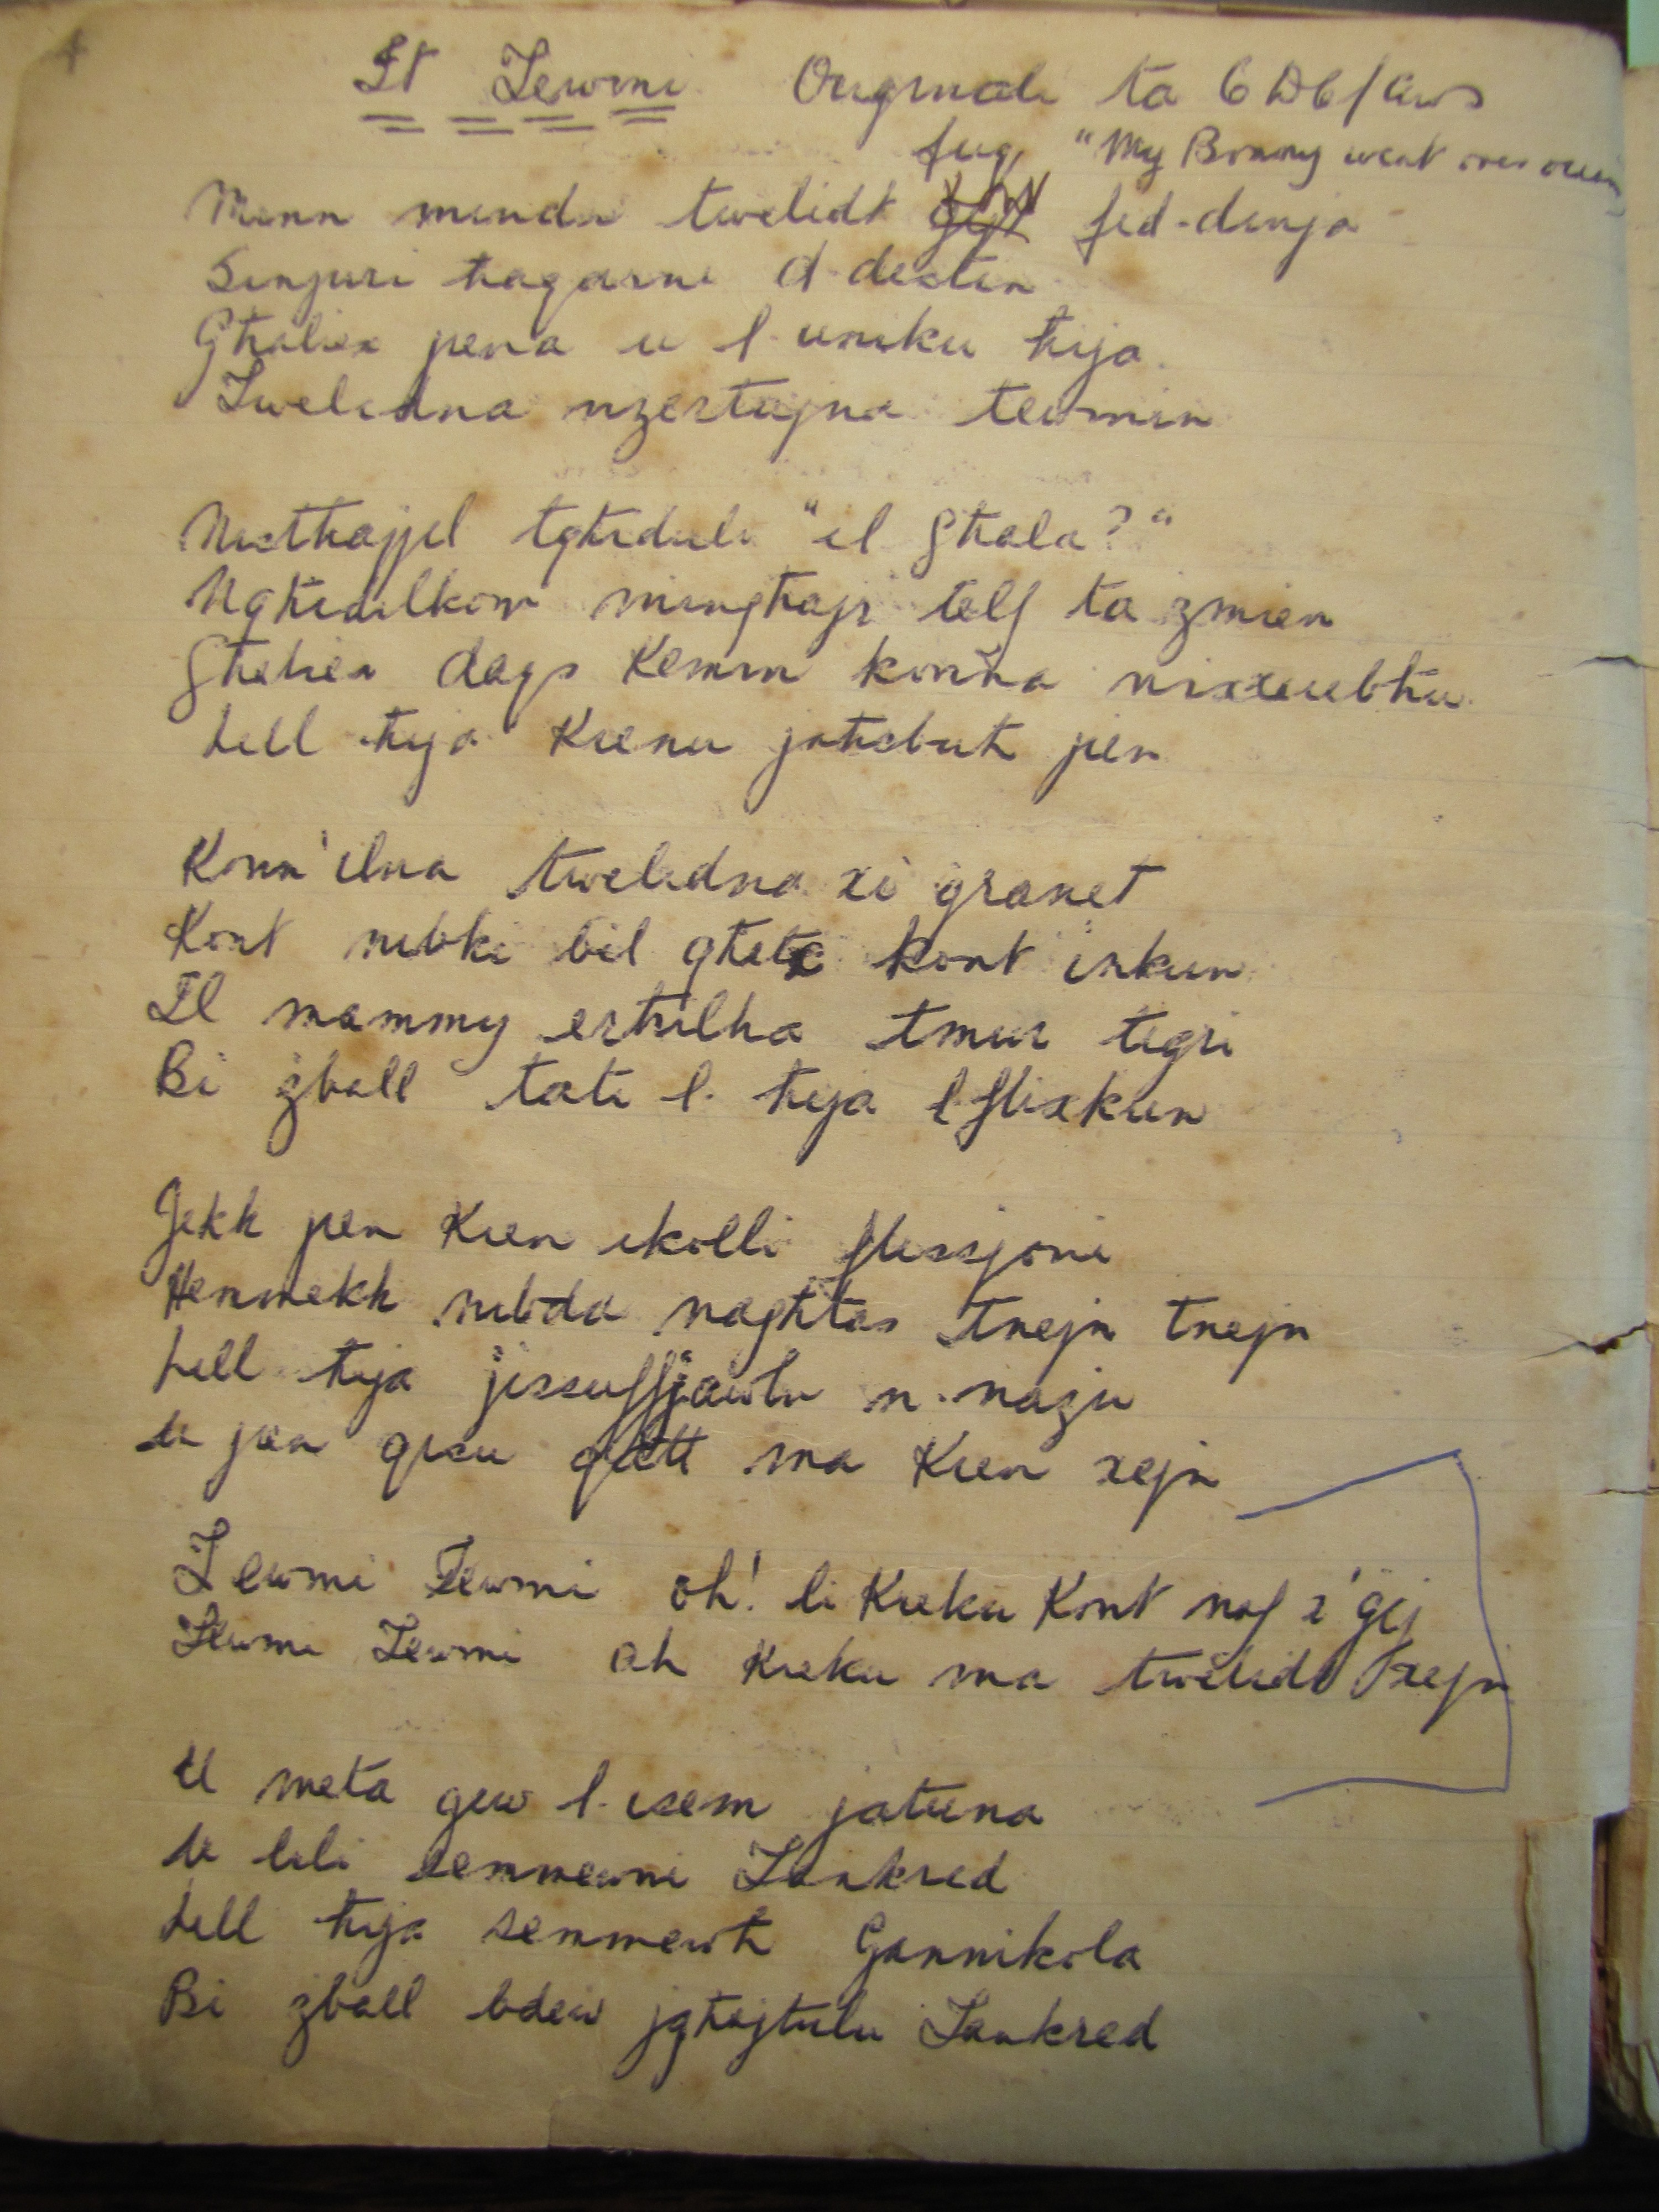 It Tewmi Originali ta
fuq "My Bonny went over
Minn mindu twelidt fid-dinja
Sinjuri ħaqarni d-destin
Għaliex jiena u l-uniku ħija
Twelidna nzertajna tewmin
Nistħajjel tgħiduli "il għala?"
Ngħidilkom mingħajr telf ta żmien
Għaliex daqs kemm konna nixxiebhu
Lill ħija kienu jaħsbuh jien
Konn'ilna twelidna xi ġranet
Kont nibki bil għatx kont inkun
Il mammy ertilha tmur tiġri
Bi żball tati l-ħija l flixkun
Jekk jien kien ikolli flissjoni
Hemmekk nibda nagħtas tnejn tnejn
Lill ħija jissuffjawlu n-nażu
U jien qisu qatt ma kien xejn
Tewmi Tewmi oh! li kieku kont naf x'ġej
Tewmi Tewmi ah kieku ma twelidt xejn
U meta ġew l-isem jatuna
U lili semmewni Tankred
Lill ħija semmewh Gannikola
Bi żball bdew jgħajtulu Tankred